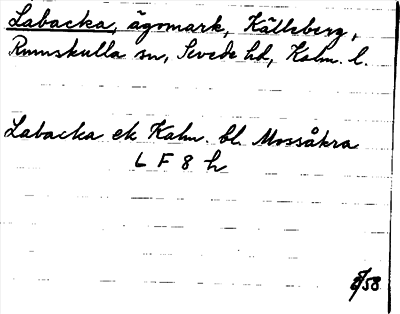 Labacka, ägomark, Källeberg,
Rumskulla sn, Sevede hd, Kalm. l.
Labacka ek Kalm. bl. Mossåkra
L F 8 h
58